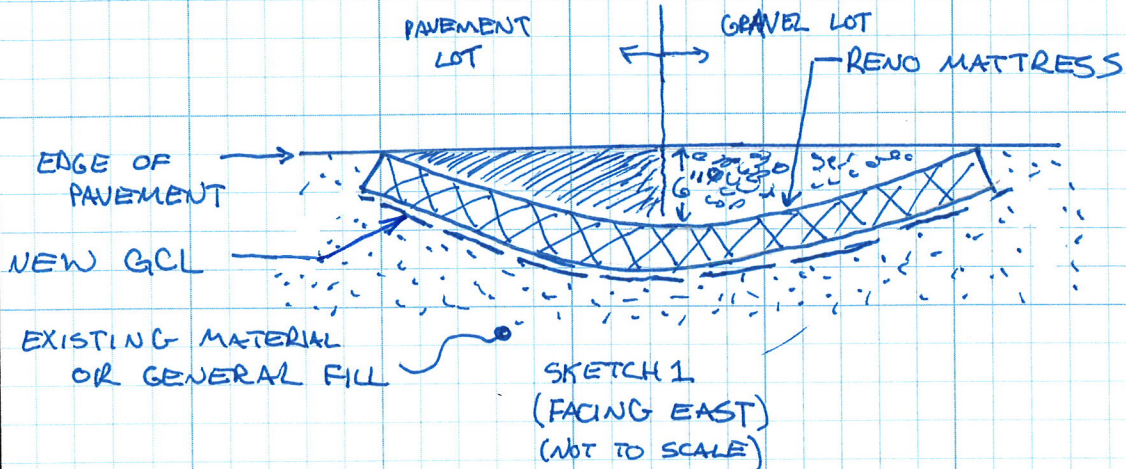 PAVEMENT
LOT
GRAVEL LOT
RENO MATTRESS
EDGE OF
PAVEMENT
6"
NEW GCL
EXISTING MATERIAL
OR GENERAL FILL
SKETCH 1
(FACING EAST)
(NOT TO SCALE)